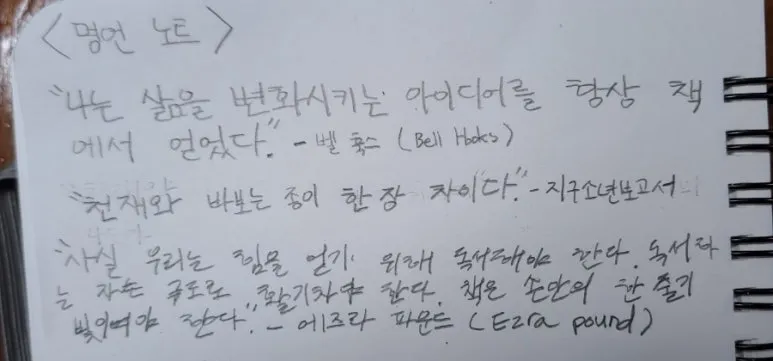 <명언 노트>
"나는 삶을 변화시키는 아이디어를 항상 책
에서 얻었다." - 벨 훅스 (Bell Hooks)
"천재와 바보는 종이 한 장 차이다." - 지구소년보고서
"사실 우리는 힘을 얻기 위해 독서해야 한다. 독서하
는 자는 극도로 활기차야 한다. 책은 손안의 한 줄기
빛이여야 한다." - 에즈라 파운드 (Ezra pound)